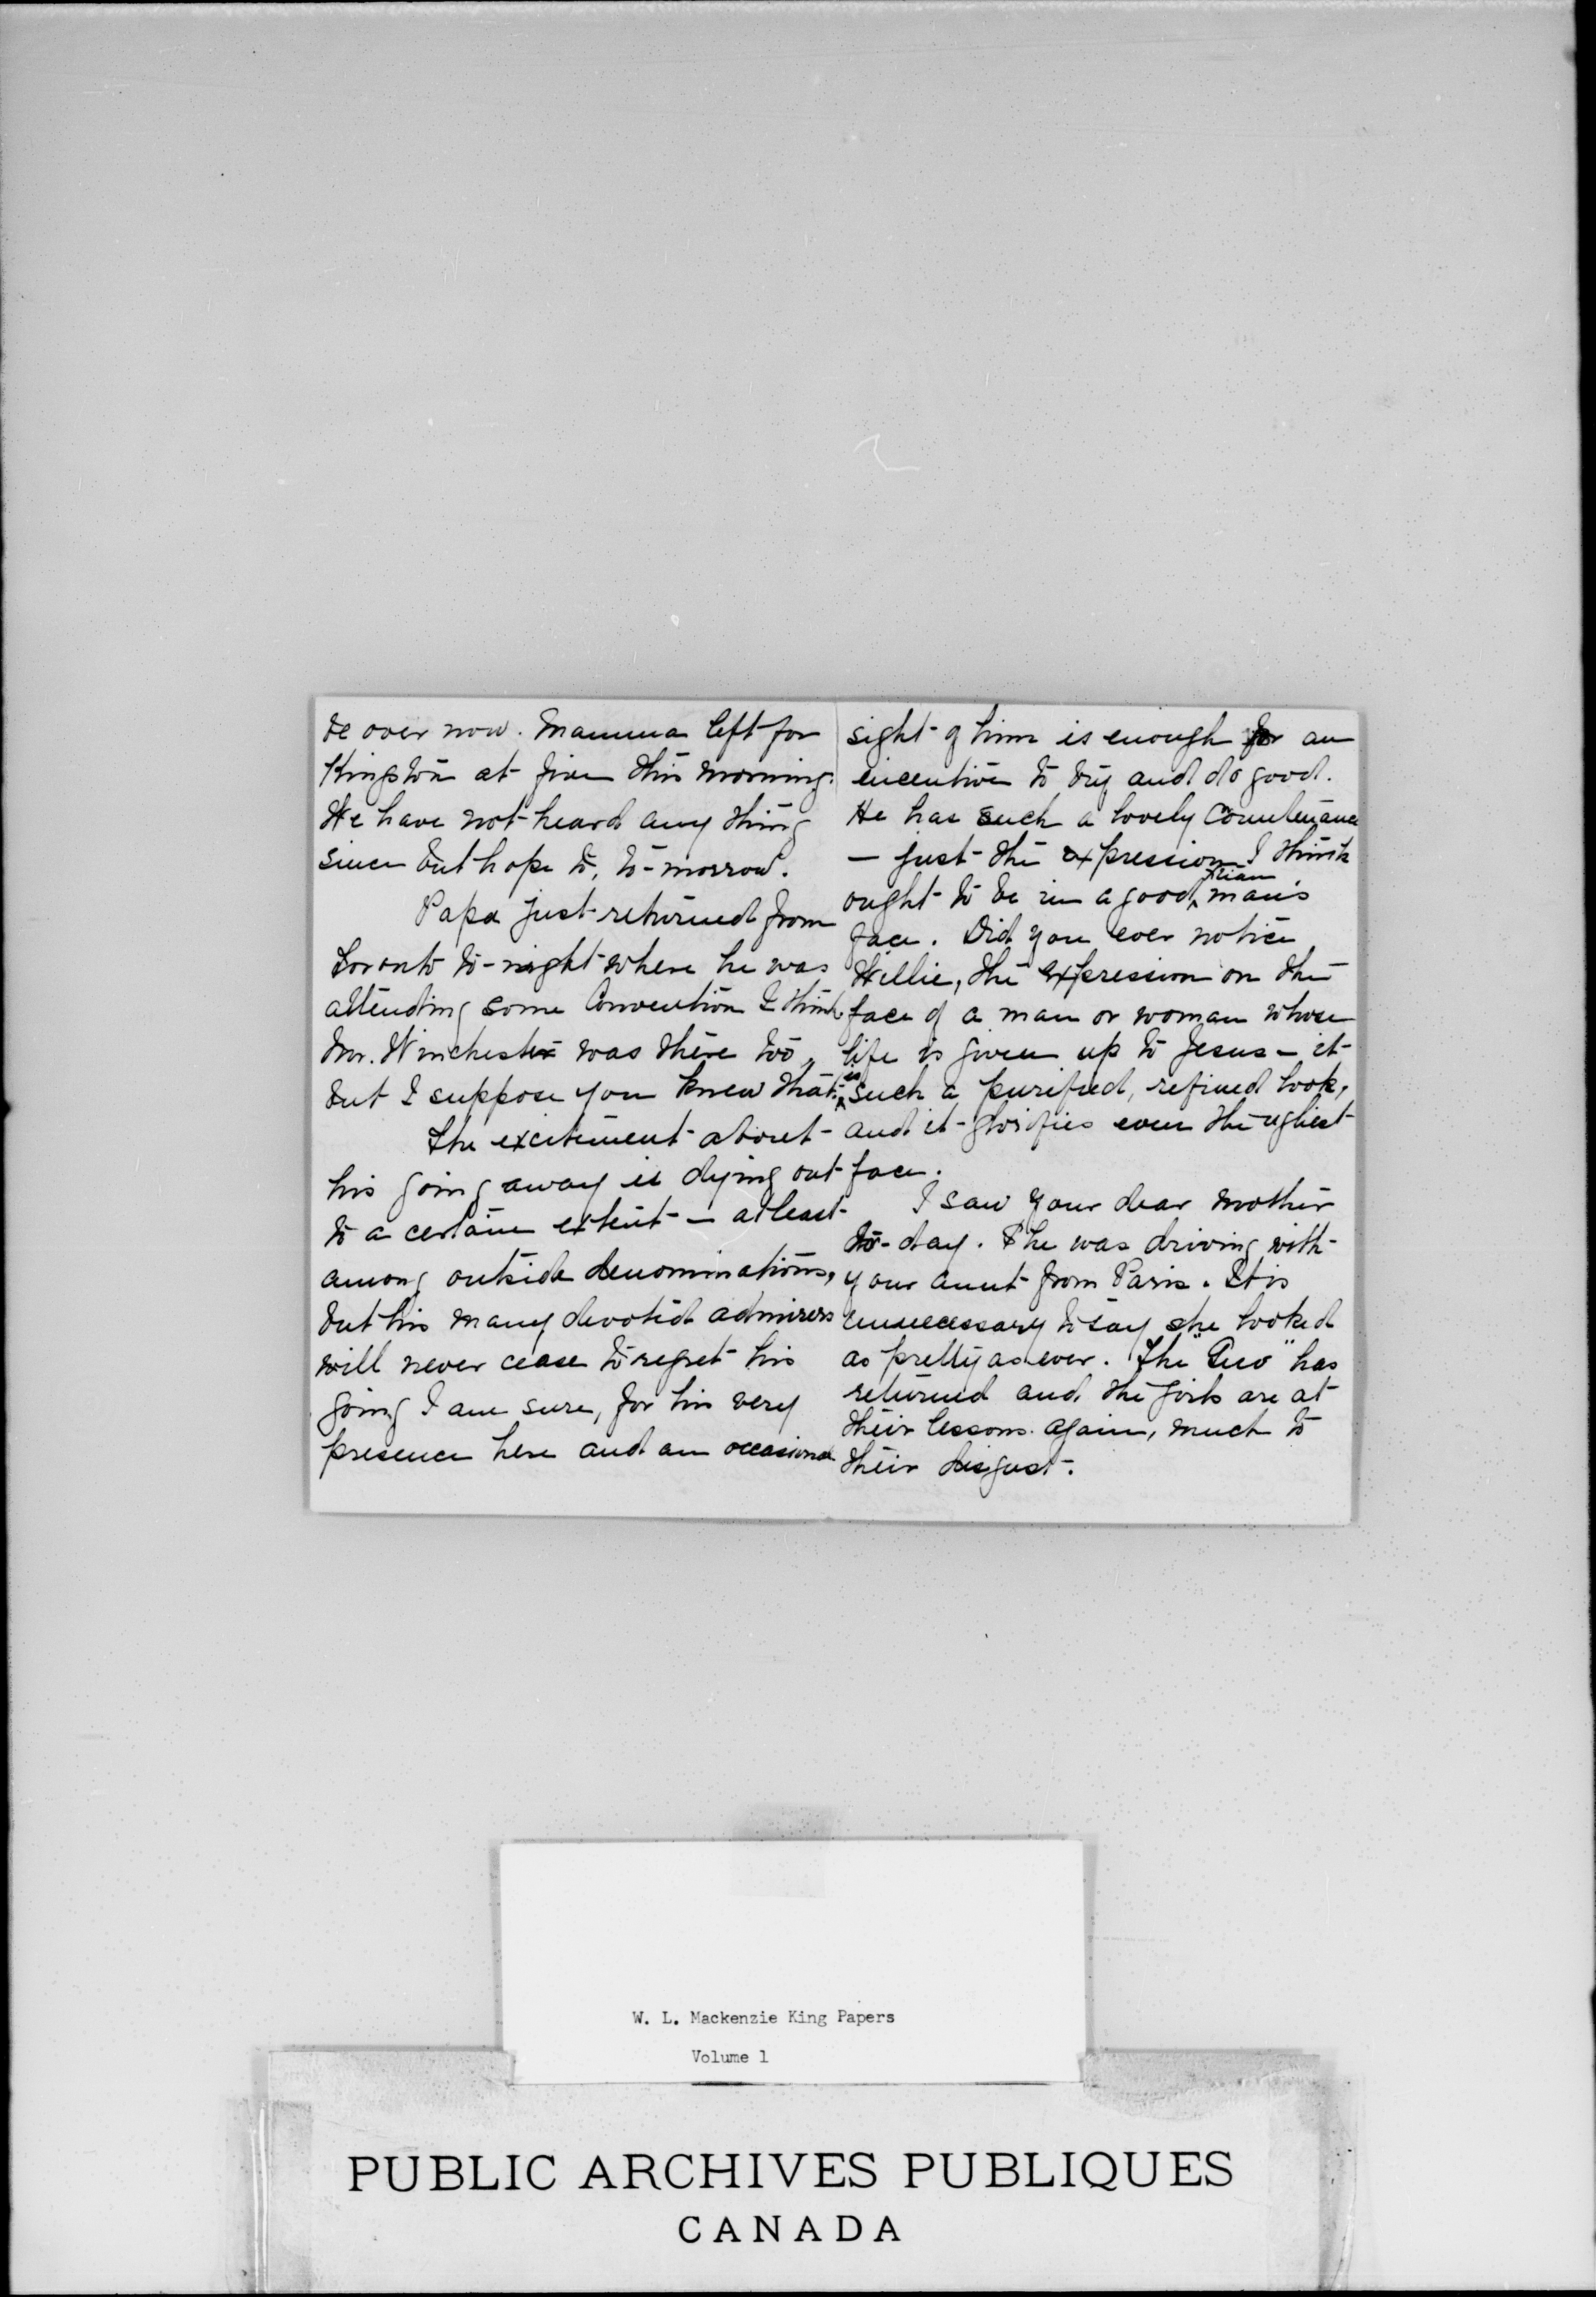 be over now. Mamma left for
Kingston at five this morning.
We have not heard any thing
since but hope to, to-morrow.
Papa just returned from
Toronto to-night where he was
attending some Convention I think
Mr. Winchester was there too,
but I suppose you knew that.
The excitement about
his going away is dying out
to a certain extent — at least
among outside denominations,
but his many devoted admirers
will never cease to regret his
going I am sure, for his very
presence here and an occasional
sight of him is enough for an
incentive to try and do good.
He has such a lovely countenance
— just the expression I think
ought to be in a good Xtian man's
face. Did you ever notice
Willie, the expression on the
face of a man or woman whose
life is given up to Jesus – it
is such a purified, refined look,
and it glorifies even the ugliest
face.
I saw your dear mother
to-day. She was driving with
your aunt from Paris. It is
unnecessary to say she looked
as pretty as ever. The "Guv" has
returned and the girls are at
their lessons again, much to
their disgust.
W. L. Mackenzie King Papers
Volume 1
PUBLIC ARCHIVES PUBLIQUES
CANADA